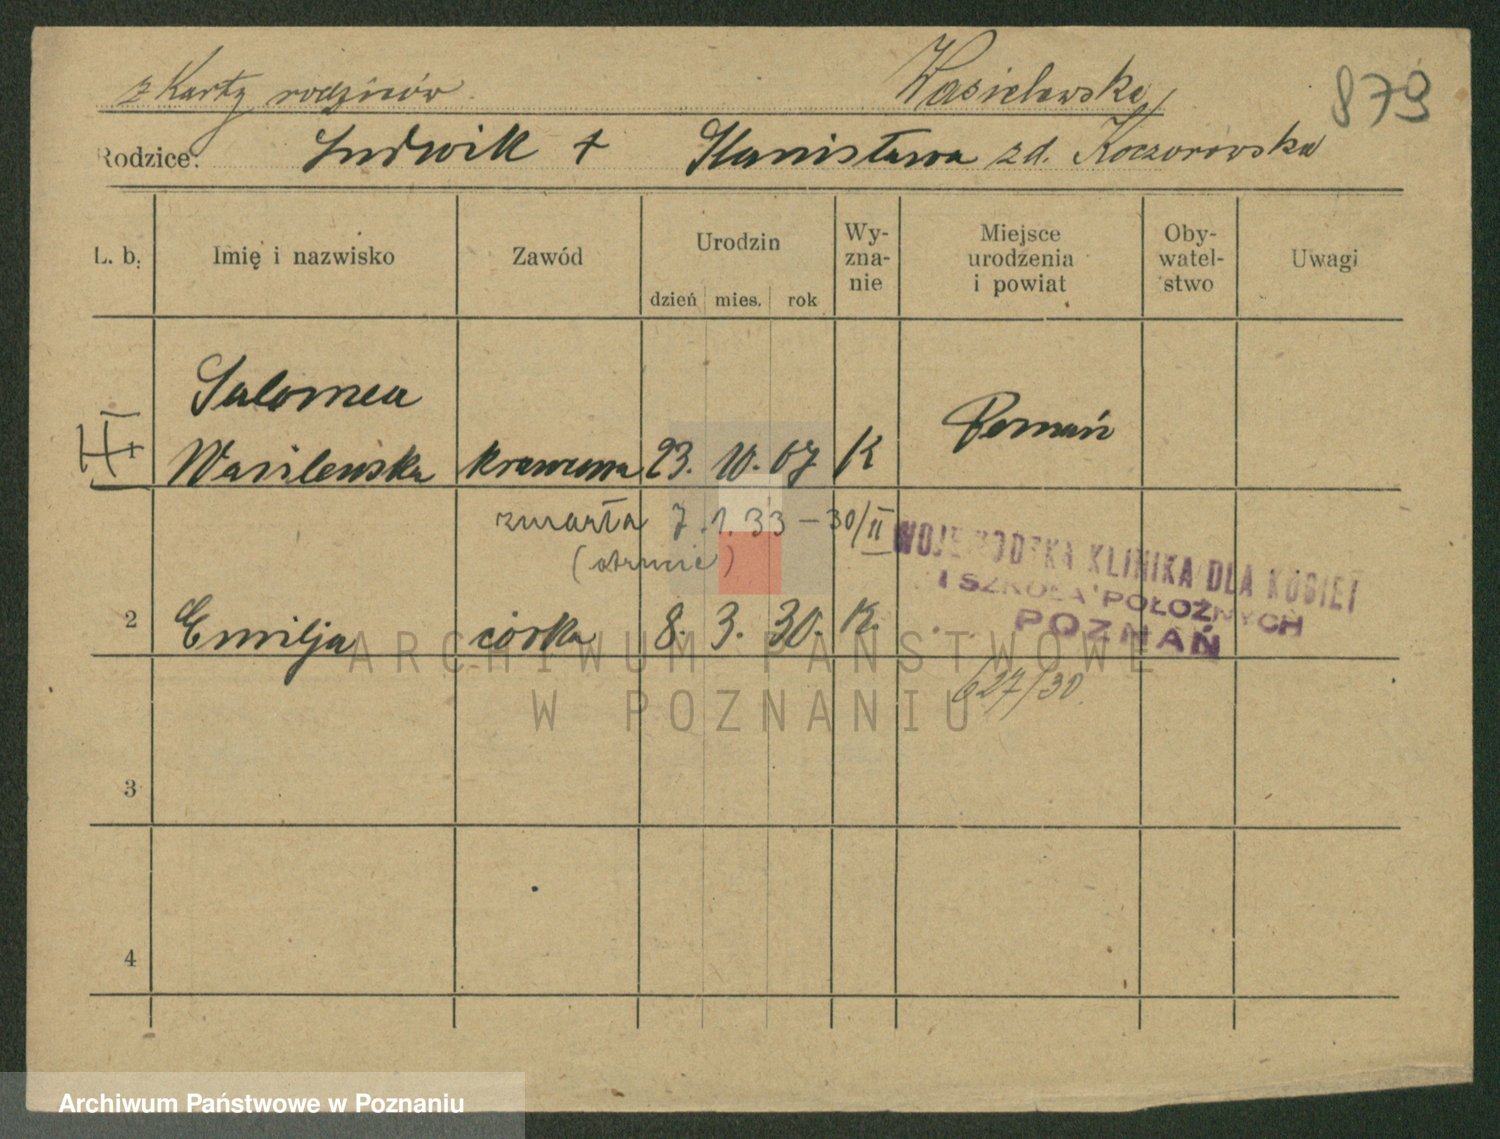 z Karty rodziców Wasielewska 879
Rodzice: Ludwik + Stanisława zd. Koczorowska
L. b. Imię i nazwisko Zawód Urodzin dzień mies. rok Wy-zna-nie Miejsce urodzenia i powiat Oby-watel-stwo Uwagi
Salomea
Wasilewska krawcowa 23. 10. 07 K Poznań
zmarła 7. 1. 33 – 30/II
(otrucie)
WOJEWÓDZKA KLINIKA DLA KOBIET
I SZKOŁA POŁOŻNYCH
POZNAŃ
2 Emilja córka 8. 3. 30. K.
627/30.
3
4
ARCHIWUM PAŃSTWOWE
W POZNANIU
Archiwum Państwowe w Poznaniu